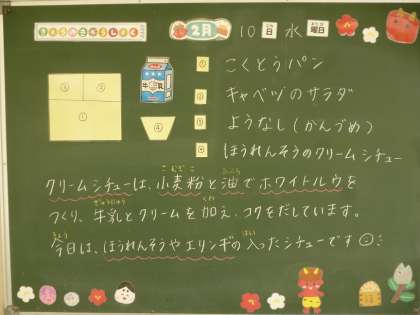 きょうのきゅうしょく
2月 10日 水曜日
び
ようび
② ③
①
④
牛乳
① こくとうパン
② キャベツのサラダ
③ ようなし(かんづめ)
④ ほうれんそうのクリームシチュー
こむぎこ
クリームシチューは、小麦粉と油でホワイトルウを
ぎゅうにゅう くわ
つくり、牛乳とクリームを加え、コクをだしています。
きょう はい
今日は、ほうれんそうやエリンギの入ったシチューです